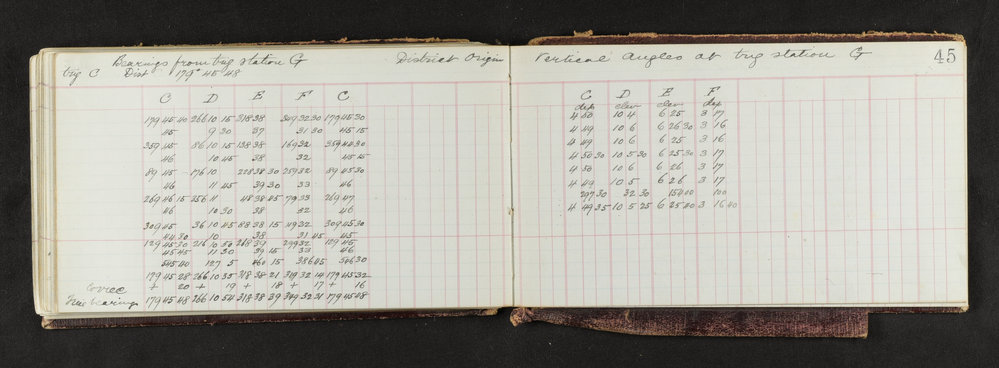 Bearings from trig station G District Origin
trig C Dist 179° 45' 48
C D E F C
179 45 40 266 10 15 318 38 309 32 30 179 45 30
45 9 30 37 31 30 45 15
359 45 86 10 15 138 38 169 32 359 44 30
46 10 45 38 32 45 15
89 45 176 10 228 38 30 259 32 89 45 30
46 11 45 39 30 33 46
269 46 15 256 11 48 38 45 79 33 269 47
46 10 30 38 32 46
309 45 36 10 45 88 38 15 119 32 309 45 30
44 30 10 38 31 45 45
129 45 30 216 10 50 268 39 299 32 129 45
45 45 11 30 39 15 33 46
545 40 127 5 460 15 386 45 546 30
179 45 28 266 10 35 318 38 21 319 32 14 179 45 32
Correc + 20 + 19 + 18 + 17 + 16
True bearings 179 45 48 266 10 54 318 38 39 349 32 31 179 45 48
Vertical Angles at trig station G 45
C D E F
dep elev elev dep
4 50 10 4 6 25 3 17
4 49 10 6 6 26 30 3 16
4 49 10 6 6 25 3 16
4 50 30 10 5 30 6 25 30 3 17
4 50 10 6 6 26 3 17
4 49 10 5 6 26 3 17
297 30 32 30 154 00 100
4 49 35 10 5 25 6 25 40 3 16 40